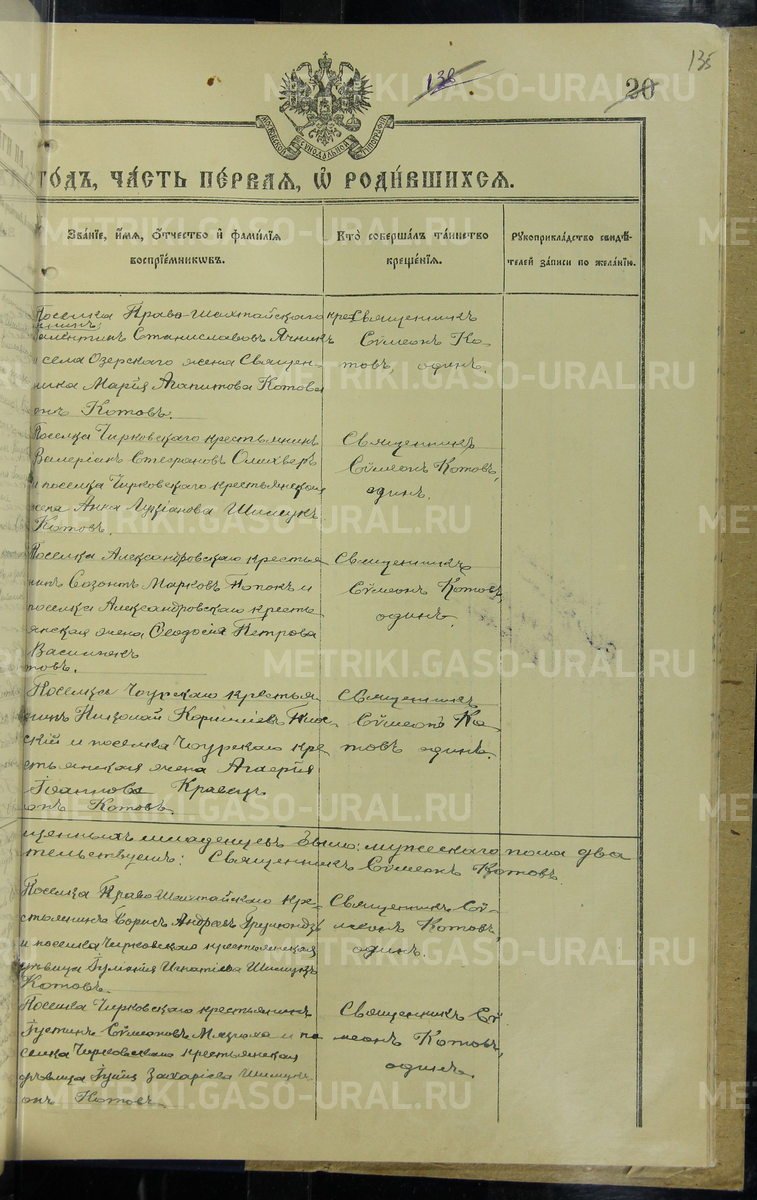 138
135
20
годъ, часть первая, ѡ родившихся.
Званіе, имя, отчество и фамилія
воспріемниковъ.
Кто совершалъ таинство
крещенія.
Рукоприкладство свидѣ-
телей записи по желанію.
Поселка Право-Шахтайскаго кре-
Валентинъ Станиславовъ
и села Озерскаго жена Священ-
ника Марія Агапитова Котова
онъ Котовъ.
Священникъ
Сѵмеонъ Ко-
товъ, одинъ.
Поселка Чирковскаго крестьянинъ
Валеріанъ Стефановъ
и поселка Чирковскаго крестьянская
жена Анна Шимчукъ
Котовъ.
Священникъ
Сѵмеонъ Котовъ,
одинъ.
Поселка Александровскаго крестья-
нинъ Созонтъ Марковъ и
поселка Александровскаго кресть-
янская жена Ѳеодосія Петрова
товъ.
Священникъ
Сѵмеонъ Котовъ,
одинъ.
Поселка Чоурскаго крестья-
нинъ Николай Корниліевъ
скій и поселка Чоурскаго кре-
стьянская жена Агафія
Іоаннова Кравецъ
онъ Котовъ.
Священникъ
Сѵмеонъ Ко-
товъ одинъ.
щенныхъ младенцевъ было: мужескаго пола два
тельствуемъ: Священникъ Сѵмеонъ Котовъ.
Поселка Право-Шахтайскаго кре-
стьянинъ Борисъ Андреевъ
и поселка Чирковскаго крестьянская
дѣвица Игнатіева Шимчукъ
Котовъ.
Священникъ Сѵ-
меонъ Котовъ,
одинъ.
Поселка Чирковскаго крестьянинъ
Іустинъ Сѵмеоновъ и по-
селка Чирковскаго крестьянская
дѣвица Захаріева
онъ Котовъ.
Священникъ Сѵ-
меонъ Котовъ,
одинъ.
METRIKI.GASO-URAL.RU